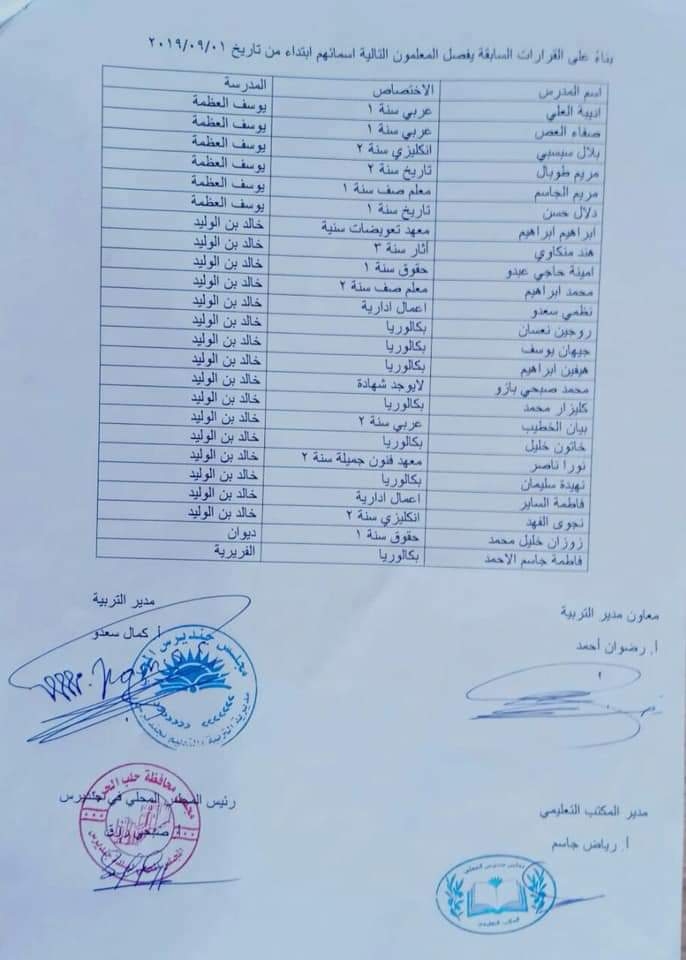 بناءً على القرارات السابقة يفصل المعلمون التالية اسمائهم ابتداء من تاريخ ٢٠١٩/٠٩/٠١
اسم المدرس الاختصاص المدرسة
اديبة العلي عربي سنة ١ يوسف العظمة
صفاء العص عربي سنة ١ يوسف العظمة
بلال سيسبي انكليزي سنة ٢ يوسف العظمة
مريم طوبال تاريخ سنة ٢ يوسف العظمة
مريم الجاسم معلم صف سنة ١ يوسف العظمة
دلال حسن تاريخ سنة ١ يوسف العظمة
ابراهيم ابراهيم معهد تعويضات سنية خالد بن الوليد
هند منكاوي آثار سنة ٣ خالد بن الوليد
امينة حاجي عبدو حقوق سنة ١ خالد بن الوليد
محمد ابراهيم معلم صف سنة ٢ خالد بن الوليد
نظمي سعدو اعمال ادارية خالد بن الوليد
روجين نعسان بكالوريا خالد بن الوليد
جيهان يوسف بكالوريا خالد بن الوليد
هيفين ابراهيم بكالوريا خالد بن الوليد
محمد صبحي بازو لايوجد شهادة خالد بن الوليد
كليزار محمد بكالوريا خالد بن الوليد
بيان الخطيب عربي سنة ٢ خالد بن الوليد
خاتون خليل بكالوريا خالد بن الوليد
نورا ناصر معهد فنون جميلة سنة ٢ خالد بن الوليد
نهيدة سليمان بكالوريا خالد بن الوليد
فاطمة الساير اعمال ادارية خالد بن الوليد
نجوى الفهد انكليزي سنة ٢ خالد بن الوليد
زوزان خليل محمد حقوق سنة ١ ديوان
فاطمة جاسم الاحمد بكالوريا الفريرية
معاون مدير التربية
أ. رضوان أحمد
مدير التربية
أ. كمال سعدو
مدير المكتب التعليمي
أ. رياض جاسم
رئيس المجلس المحلي في جنديرس
أ. صبحي رزق